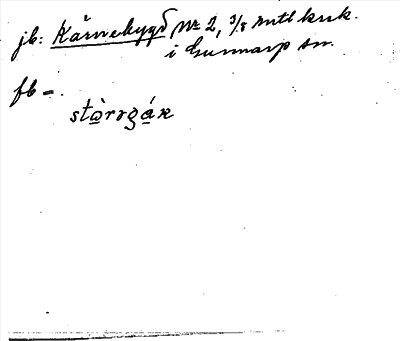 jb: Kärnebygd № 2, 3/8 mtl krsk.
i Gunnarp sn.
fb -.
stà̱rrgá̱ʀ